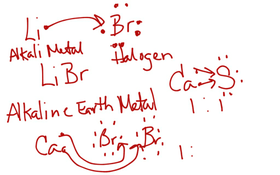 Li Br
Alkali Metal Halogen
LiBr
Ca S
1 : 1
Alkaline Earth Metal
Ca Br Br
1: